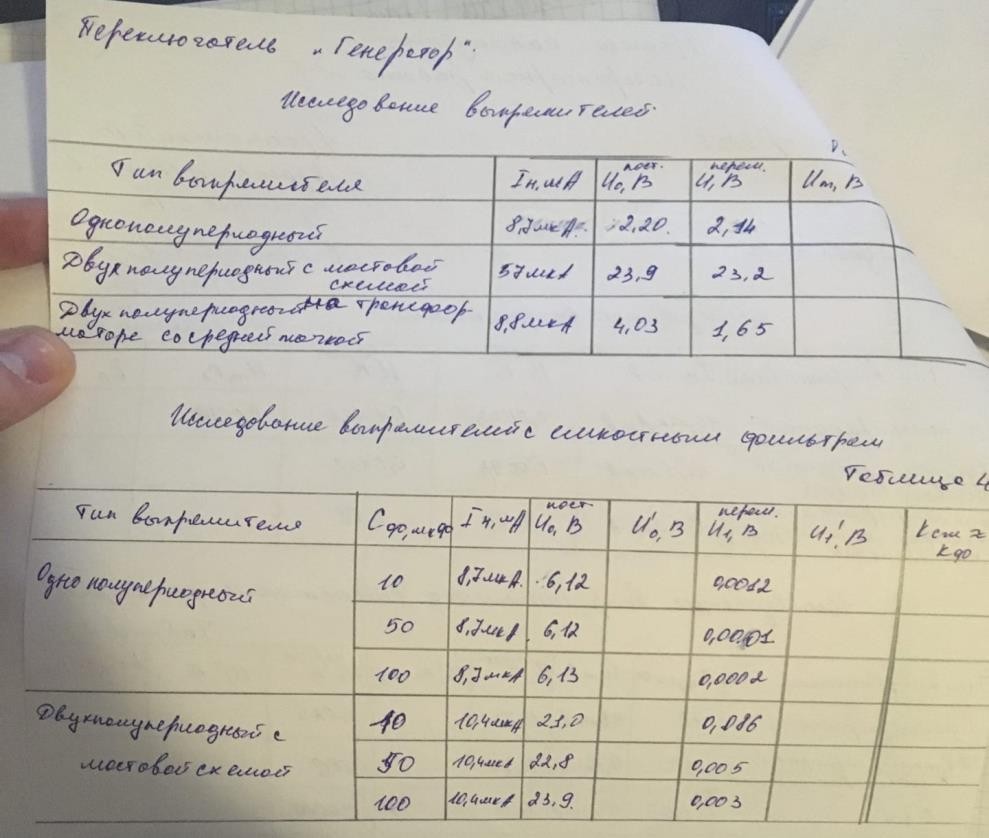 Переключатель „Генератор“.
Исследование выпрямителей
Тип выпрямителя Iн, мА U₀, В пост. U₁, В перем. Um, В
Однополупериодный 8,7мкА 2,20 2,14
Двухполупериодный с мостовой схемой 57мкА 23,9 23,2
Двухполупериодный на трансфор-
маторе со средней точкой 8,8мкА 4,03 1,65
Исследование выпрямителей с емкостным фильтрем
Таблица 4
Тип выпрямителя Cф, мкф Iн, мА U₀, В пост. U₀', В U₁, В перем. U₁', В Kст ≈ Kф
Однополупериодный 10 8,7мкА 6,12 0,0012
50 8,7мкА 6,12
100 8,7мкА 6,13 0,0002
Двухполупериодный с мостовой схемой 10 10,4мкА 21,0
50 10,4мкА 22,8 0,005
100 10,4мкА 23,9 0,003